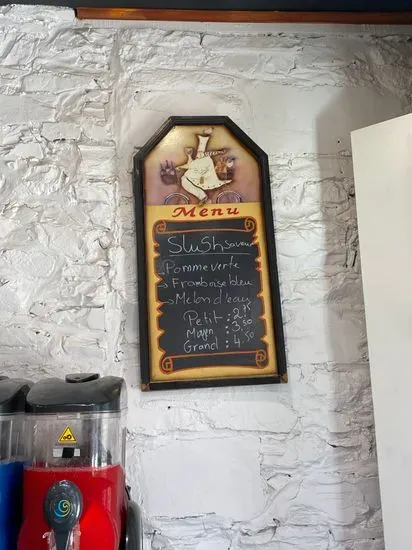 Menu
Slush saveur
→Pomme verte
→Framboise bleu
→Melon d'eau
Petit : 2.75
Moyen : 3.50
Grand : 4.50